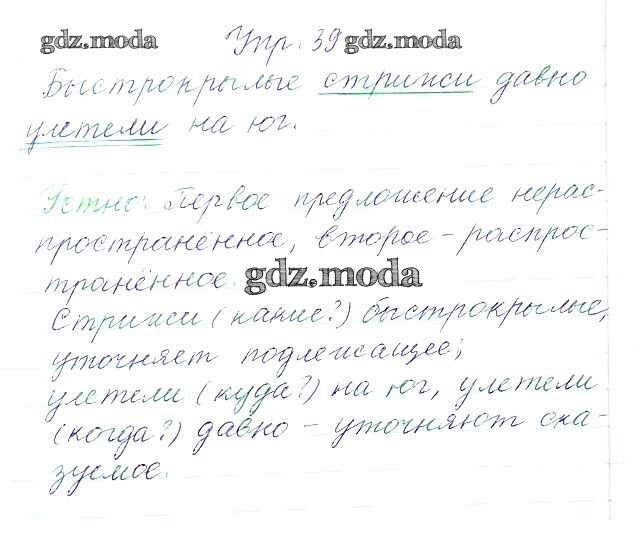 gdz.moda Упр. 39 gdz.moda
Быстрокрылые стрижи давно
улетели на юг.
Устно: Первое предложение нерас-
пространённое, второе – распрос-
транённое.
gdz.moda
Стрижи (какие?) быстрокрылые,
уточняет подлежащее;
улетели (куда?) на юг, улетели
(когда?) давно – уточняют ска-
зуемое.